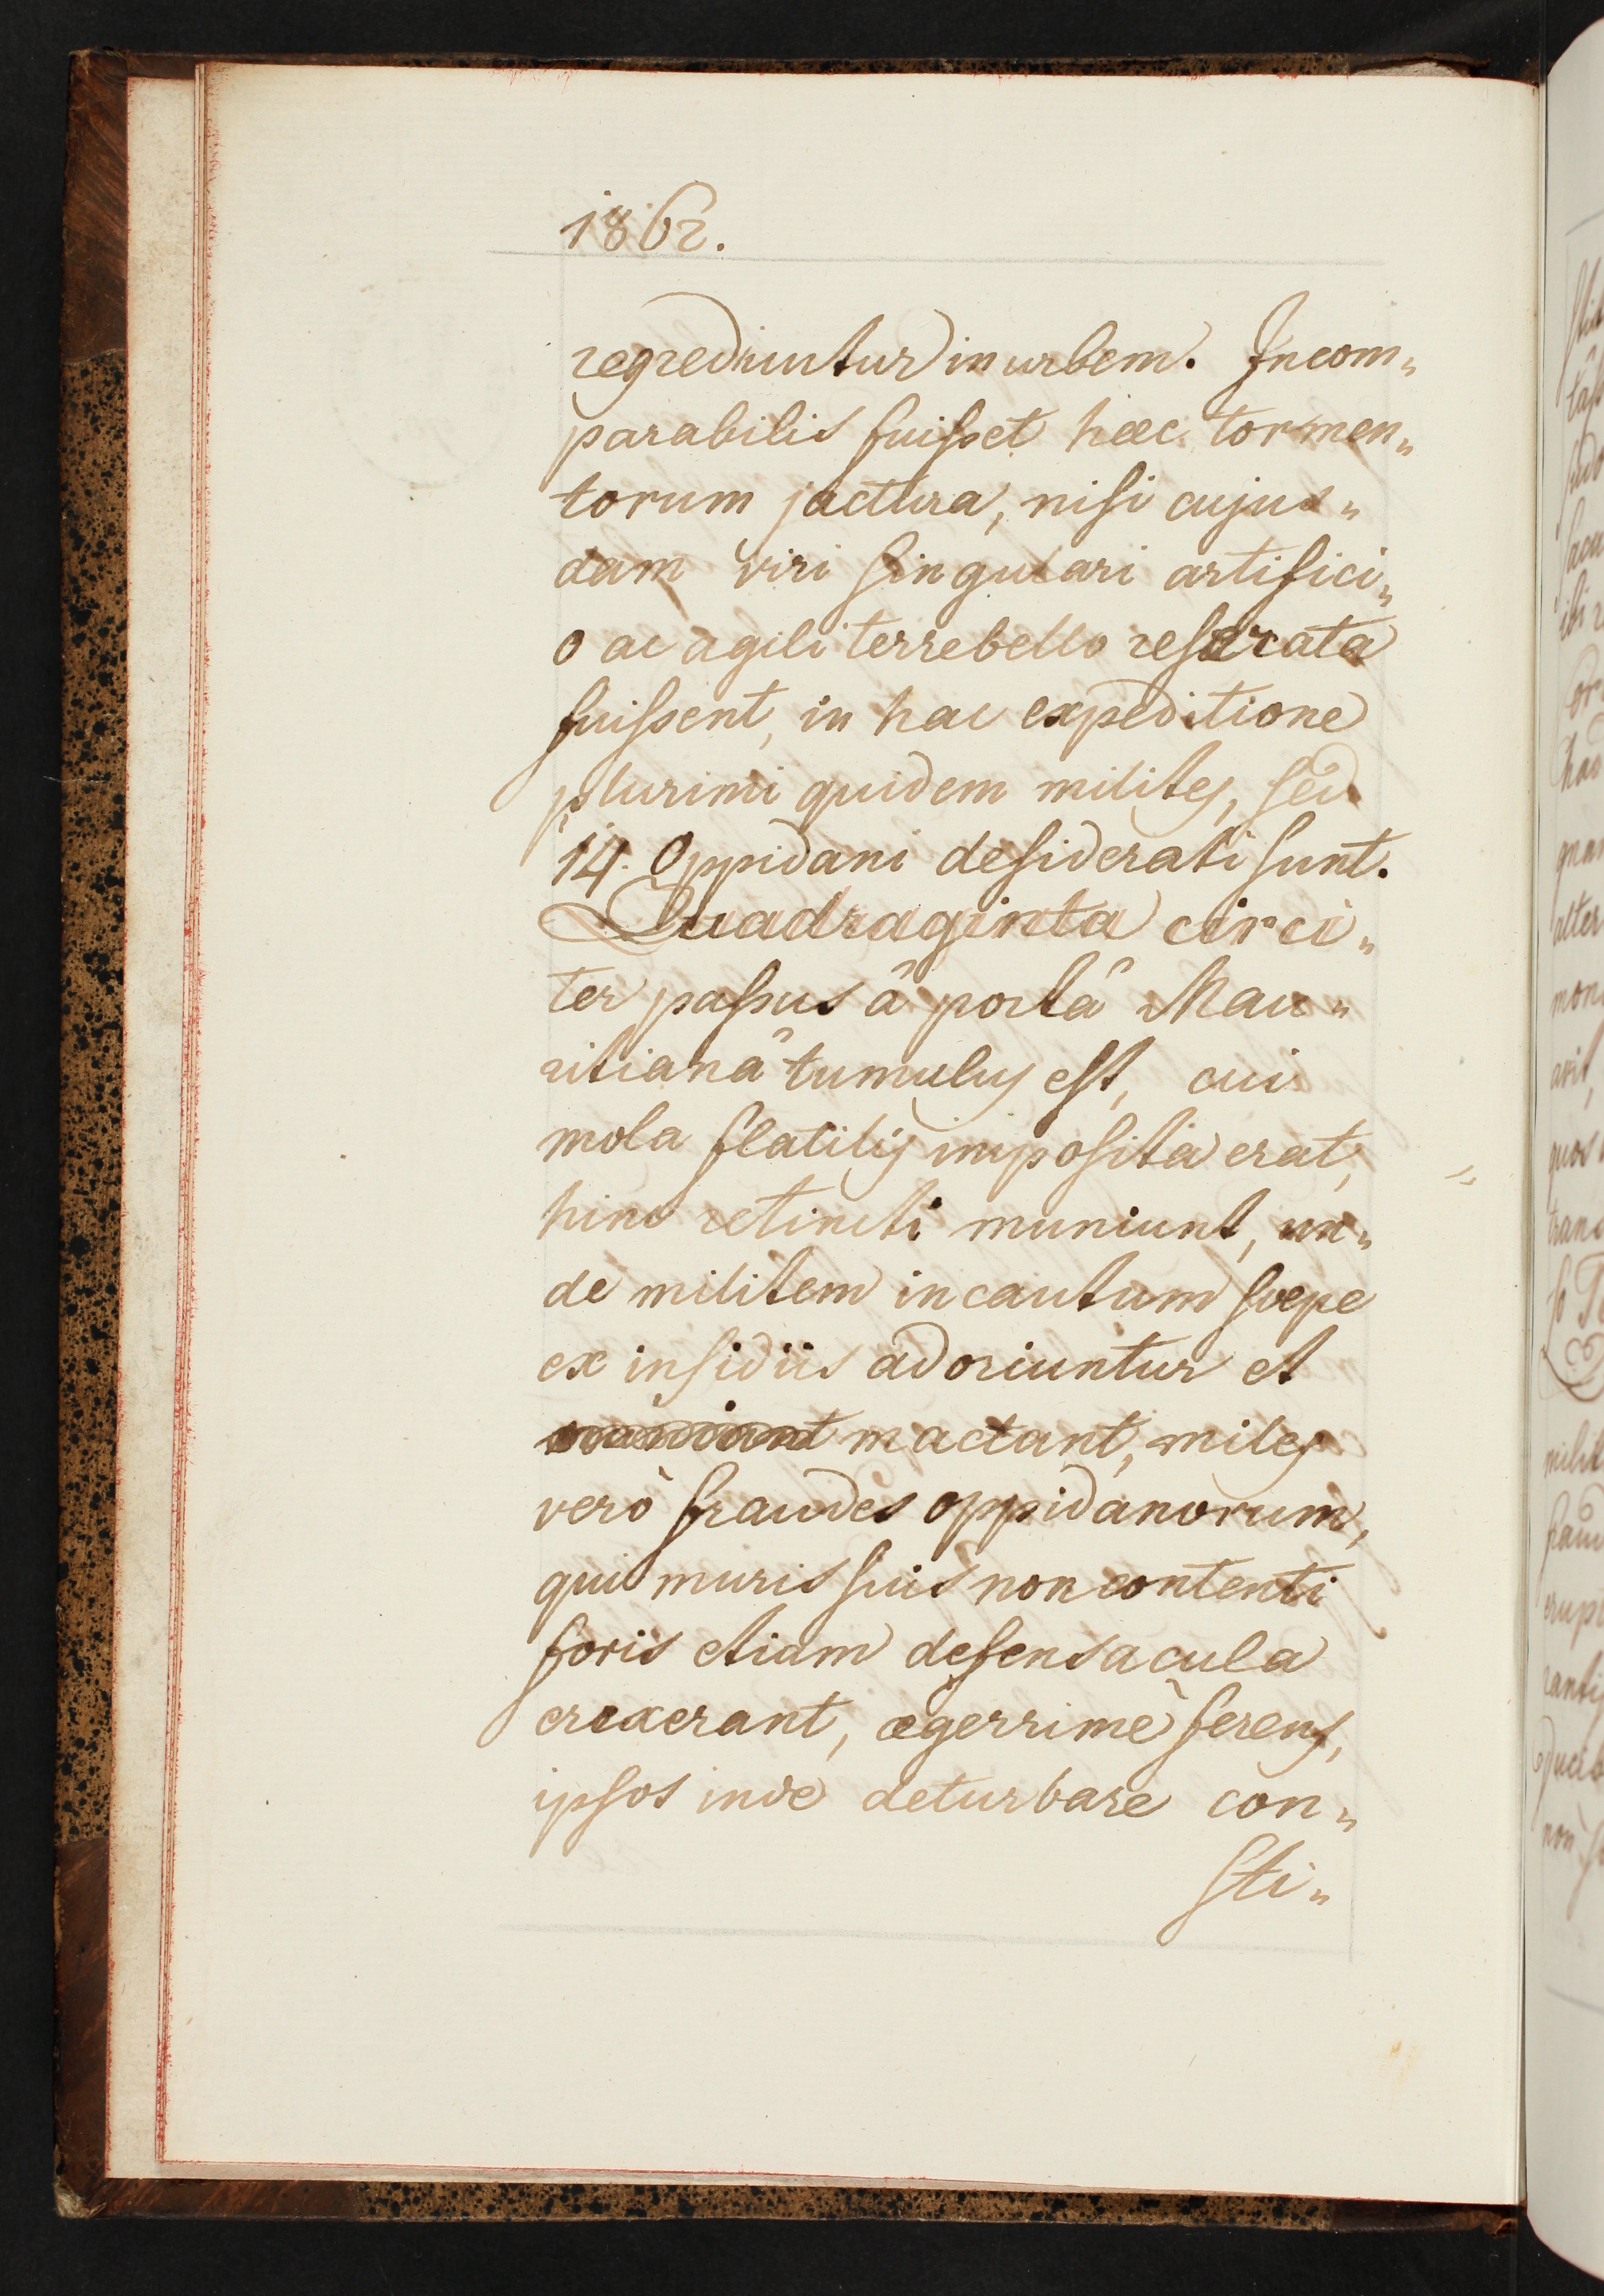 1862.
regrediuntur in urbem. Incom„
parabilis fuisset hæc tormen„
torum jactura, nisi cujus„
dam viri singulari artifici„
o ac agili terrebello reserata
fuissent, in hac expeditione
plurimi quidem milites, sed
14. Oppidani desiderati sunt.
Quadraginta circi„
ter passus â portâ Mau„
ritianâ tumulus est, cui
mola flatilis imposita erat,
hinc retincti muniunt, un„
de militem incautum sæpe
ex insidiis adoriuntur et
mactant, miles
verò fraudes oppidanorum,
qui muris suis non contenti
foris etiam defensacula
erexerant, ægerrimè ferens,
ipsos inde deturbare con„
sti„